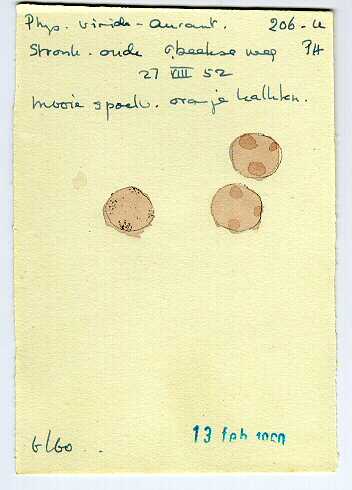 Phys. viride-aurant. 206-u
Stronk. oude beekse weg PH
27 VIII 52
mooie spoelk. oranje kalkkn.
6/60
13 feb 1960